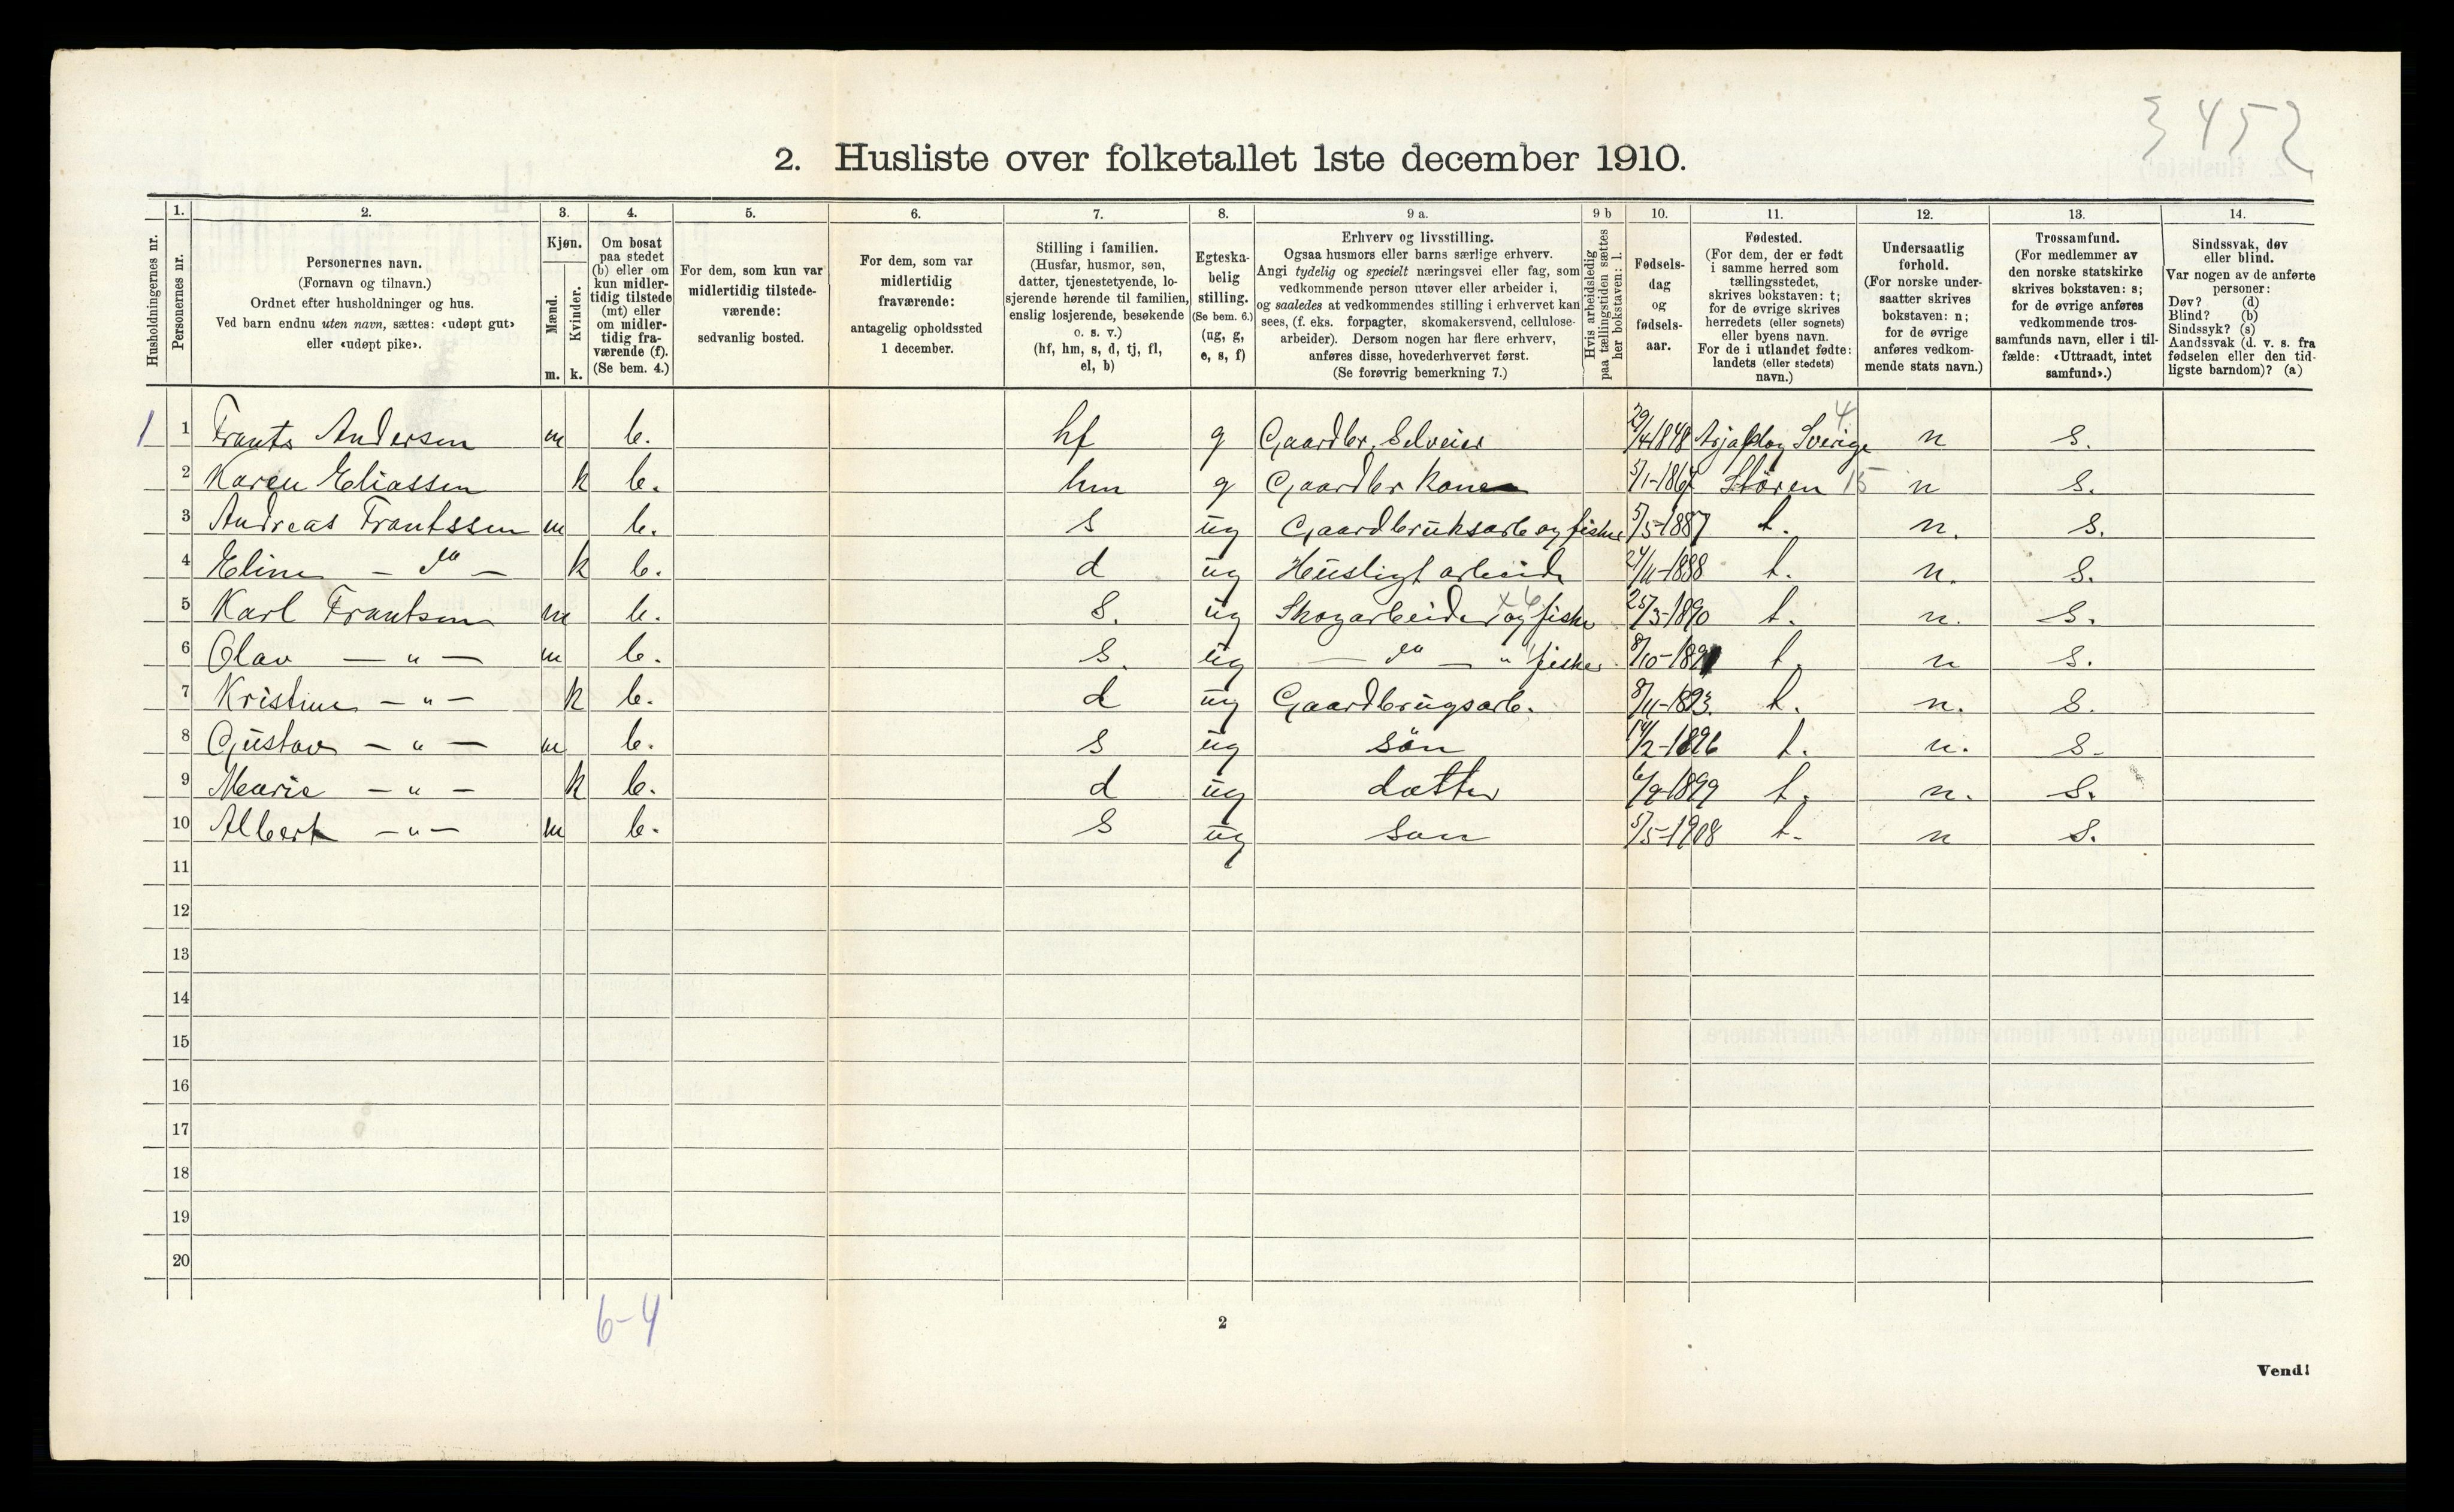 3452
2. Husliste over folketallet 1ste december 1910.
1. 2. 3. 4. 5. 6. 7. 8. 9 a. 9 b 10. 11. 12. 13. 14.
Husholdningernes nr.
Personernes nr.
Personernes navn.
(Fornavn og tilnavn.)
Ordnet efter husholdninger og hus.
Ved barn endnu uten navn, sættes: «udøpt gut»
eller «udøpt pike».
Kjøn.
Mænd.
Kvinder.
m. k.
Om bosat
paa stedet
(b) eller om
kun midler-
tidig tilstede
(mt) eller
om midler-
tidig fra-
værende (f).
(Se bem. 4.)
For dem, som kun var
midlertidig tilstede-
værende:
sedvanlig bosted.
For dem, som var
midlertidig
fraværende:
antagelig opholdssted
1 december.
Stilling i familien.
(Husfar, husmor, søn,
datter, tjenestetyende, lo-
sjerende hørende til familien,
enslig losjerende, besøkende
o. s. v.)
(hf, hm, s, d, tj, fl,
el, b)
Egteska-
belig
stilling.
(Se bem. 6.)
(ug, g,
e, s, f)
Erhverv og livsstilling.
Ogsaa husmors eller barns særlige erhverv.
Angi tydelig og specielt næringsvei eller fag, som
vedkommende person utøver eller arbeider i,
og saaledes at vedkommendes stilling i erhvervet kan
sees, (f. eks. forpagter, skomakersvend, cellulose-
arbeider). Dersom nogen har flere erhverv,
anføres disse, hovederhvervet først.
(Se forøvrig bemerkning 7.)
Hvis arbeidsledig
paa tællingstiden sættes
her bokstaven: l.
Fødsels-
dag
og
fødsels-
aar.
Fødested.
(For dem, der er født
i samme herred som
tællingsstedet,
skrives bokstaven: t;
for de øvrige skrives
herredets (eller sognets)
eller byens navn.
For de i utlandet fødte:
landets (eller stedets)
navn.)
Undersaatlig
forhold.
(For norske under-
saatter skrives
bokstaven: n;
for de øvrige
anføres vedkom-
mende stats navn.)
Trossamfund.
(For medlemmer av
den norske statskirke
skrives bokstaven: s;
for de øvrige anføres
vedkommende tros-
samfunds navn, eller i til-
fælde: «Uttraadt, intet
samfund».)
Sindssvak, døv
eller blind.
Var nogen av de anførte
personer:
Døv? (d)
Blind? (b)
Sindssyk? (s)
Aandssvak (d. v. s. fra
fødselen eller den tid-
ligste barndom)? (a)
1 1 Frants Andersen m b. hf g Gaardbr. Selveier 29/4 1848 Arjaplog Sverige 4 n s.
2 Karen Eliassen k b. hm g Gaardbr kone 5/1-1867 Stören 15 n s.
3 Andreas Frantssen m b. s ug Gaardbruksarb og fisker 5/5-1887 t. n. s.
4 Eline - do - k b. d ug Husligt arbeide 24/11-1888 t. n. s.
5 Karl Frantsen m b. s. ug Skogarbeider og fisker 25/3-1890 t. n. s.
6 Olav - " - m b. s. ug - do - " fisker 8/10-1891 t. n s.
7 Kristine - " - k b. d ug Gaardbrugsarb. 8/11-1893. t. n. s.
8 Gustav - " - m b. s ug sön 14/2-1896 t. n. s.
9 Marie - " - k b. d ug datter 6/9-1899 t. n. s.
10 Albert - " - m b. s ug son 5/5-1908 t. n s.
11
12
13
14
15
16
17
18
19
20
6-4
2
Vend!